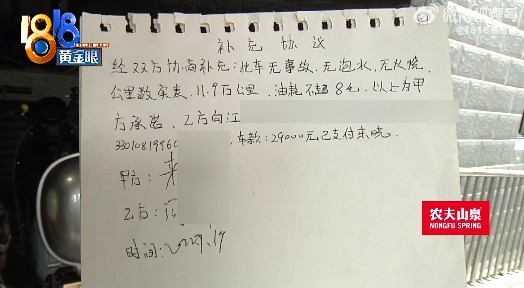 1818
黄金眼
补充协议
经双方协商补充:此车无事故、无泡水、无火烧、
公里数实表、11.9万公里、油耗不超8毛、以上为甲
方承诺、乙方向江
3301081996 车款:29000元已支付来晓.
甲方:来
乙方:
时间:
农夫山泉
NONGFU SPRING